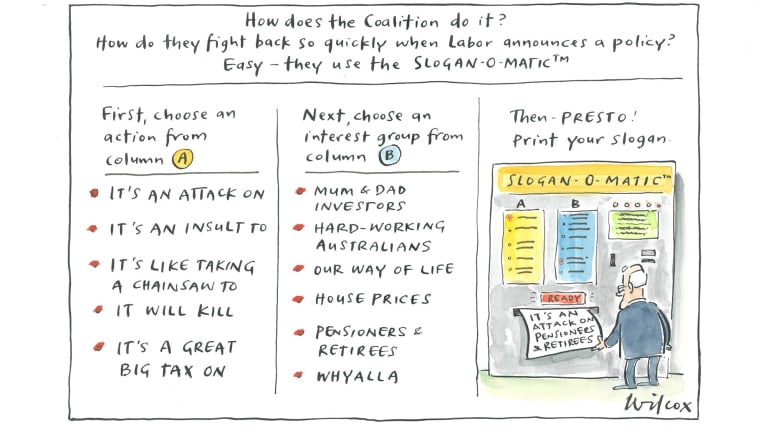 How does the Coalition do it?
How do they fight back so quickly when Labor announces a policy?
Easy – they use the SLOGAN-O-MATIC™
First, choose an
action from
column A
IT'S AN ATTACK ON
IT'S AN INSULT TO
IT'S LIKE TAKING
A CHAINSAW TO
IT WILL KILL
IT'S A GREAT
BIG TAX ON
Next, choose an
interest group from
column B
MUM & DAD
INVESTORS
HARD-WORKING
AUSTRALIANS
OUR WAY OF LIFE
HOUSE PRICES
PENSIONERS &
RETIREES
WHYALLA
Then - PRESTO!
Print your slogan.
SLOGAN-O-MATIC™
A B
READY
IT'S AN
ATTACK ON
PENSIONERS
& RETIREES
Wilcox